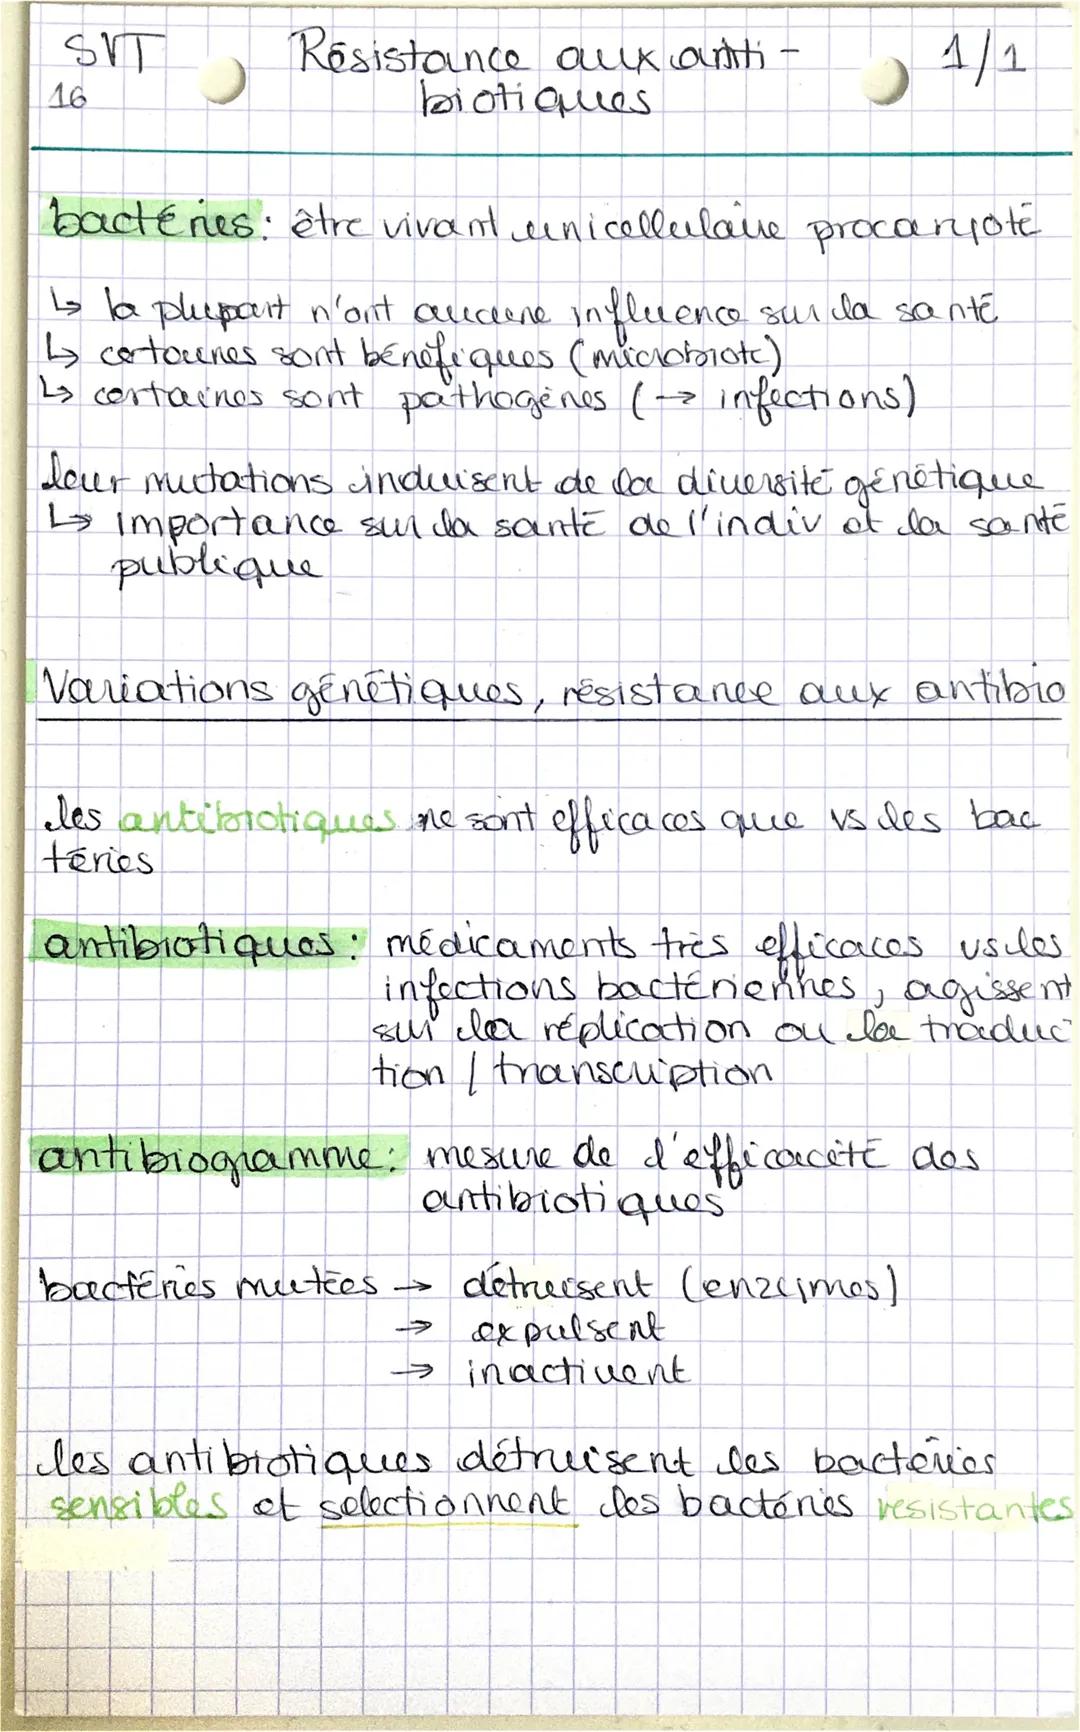 SVT Résistance aux anti- 1/1
16 biotiques
bactéries: être vivant unicellulaire procaryote
↳ la plupart n'ont aucune influence sur la santé
↳ certaines sont bénéfiques (microbiote)
↳ certaines sont pathogènes (→ infections)
leur mutations induisent de la diversité génétique
↳ importance sur la santé de l'indiv et la santé
publique
Variations génétiques, résistance aux antibio
les antibiotiques ne sont efficaces que vs les bac
téries
antibiotiques: médicaments très efficaces vs les
infections bactériennes, agissent
sur la réplication ou la traduc
tion / transcription
antibiogramme: mesure de l'efficacité des
antibiotiques
bactéries mutées → détruisent (enzymes)
→ expulsent
→ inactivent
les antibiotiques détruisent les bactéries
sensibles et selectionnent les bactéries resistantes